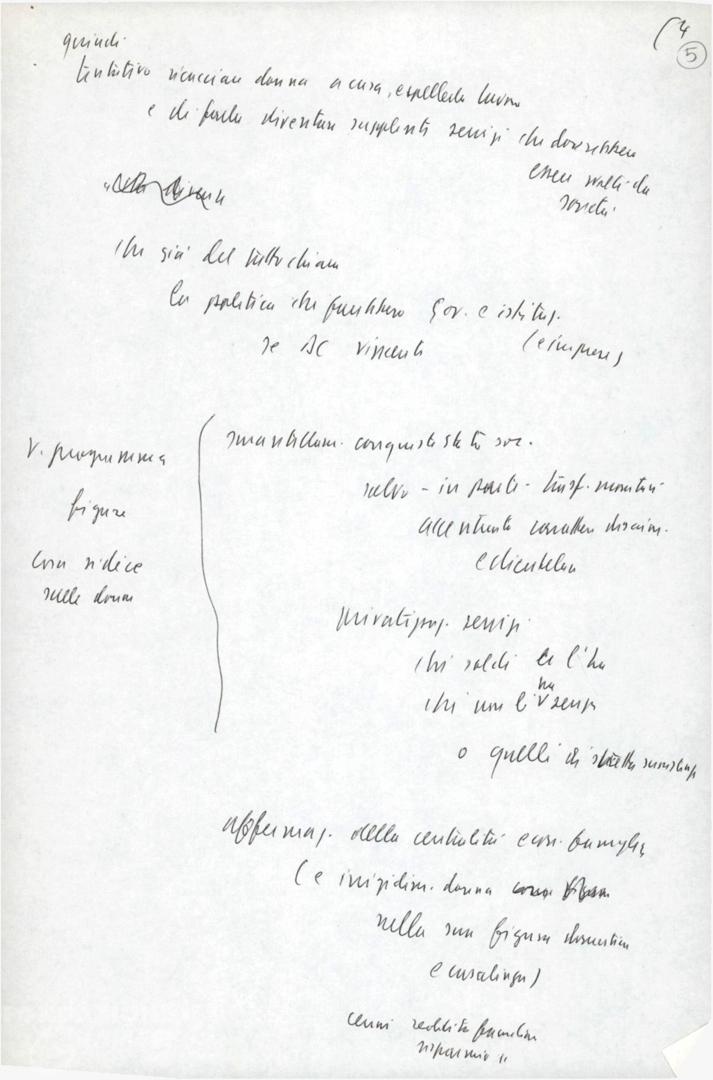 (4
5
quindi
tentativo ricacciare donna a casa, espellerla lavoro
e di farla diventare supplente servizi che dovrebbero
essere svolti da
società.
che già del tutto chiara
la politica che farebbero gov. e istituz.
se DC vincente (e imprese)
V. programma
figura
cosa si dice
sulle donne
smantellam. conquiste stato soc.
salvo - in parte - trasf. monetari
accentuato carattere discrim.
e clientelare
privatizzaz. servizi
chi soldi ce l'ha
chi non li ha senza
o quelli di stretta
affermaz. della centralità econ. famiglia
(e irrigidim. donna
nella sua figura domestica
e casalinga)
cenni reddito familiare
risparmio "